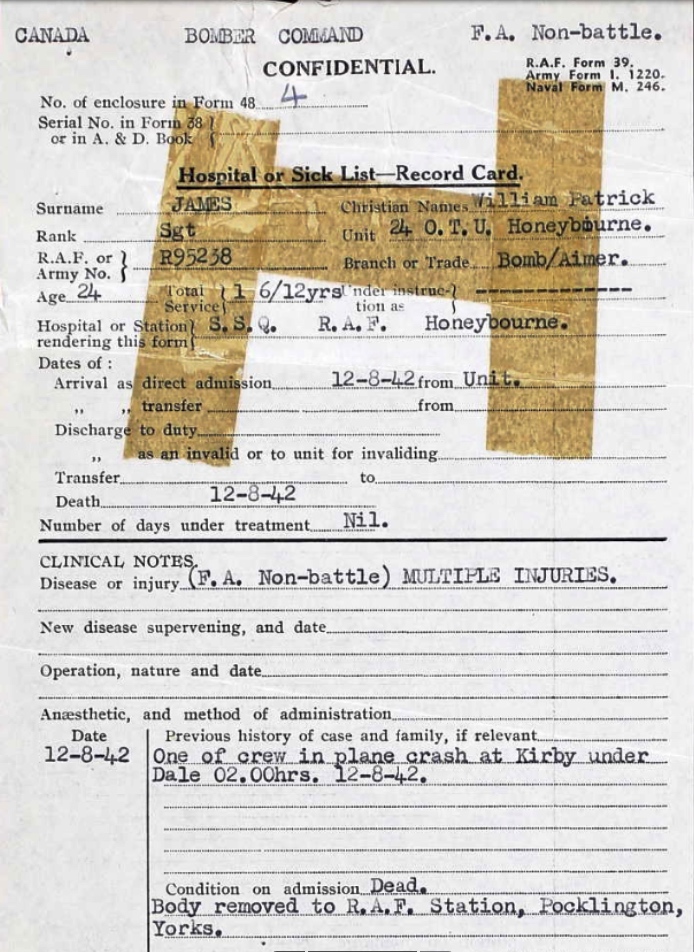 CANADA BOMBER COMMAND F.A. Non-battle.
CONFIDENTIAL.
R.A.F. Form 39.
Army Form I. 1220.
Naval Form M. 246.
No. of enclosure in Form 48 4
Serial No. in Form 38
or in A. & D. Book
Hospital or Sick List—Record Card.
Surname JAMES Christian Names William Patrick
Rank Sgt Unit 24 O.T.U. Honeybourne.
R.A.F. or Army No. R95238 Branch or Trade Bomb/Aimer.
Age 24 Total Service 1 6/12yrs Under instruction as ---------------
Hospital or Station rendering this form S.S.Q. R.A.F. Honeybourne.
Dates of :
Arrival as direct admission 12-8-42 from Unit.
„ „ transfer from
Discharge to duty
„ as an invalid or to unit for invaliding
Transfer to
Death 12-8-42
Number of days under treatment Nil.
CLINICAL NOTES.
Disease or injury (F.A. Non-battle) MULTIPLE INJURIES.
New disease supervening, and date
Operation, nature and date
Anæsthetic, and method of administration
Date Previous history of case and family, if relevant
12-8-42 One of crew in plane crash at Kirby under
Dale 02.00hrs. 12-8-42.
Condition on admission Dead.
Body removed to R.A.F. Station, Pocklington,
Yorks.